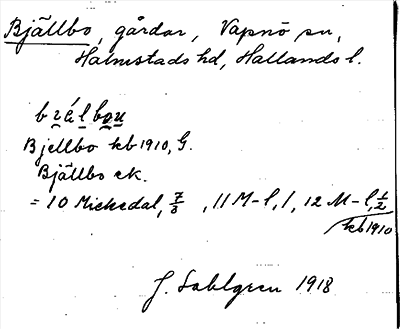 Bjällbo, gårdar, Vapnö sn,
Halmstads hd, Hallands l.
Bjellbo kb 1910, G.
Bjällbo ek.
= 10 Mickedal, 7/8, 11 M-l, 1, 12 M-l, 1/2
kb 1910
J. Sahlgren 1918